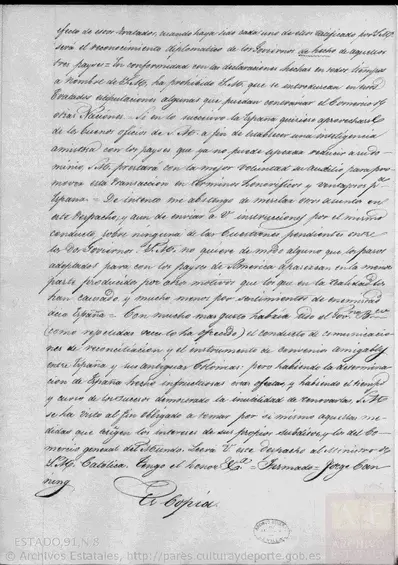 efecto de estos tratados, cuando haya sido cada uno de ellos ratificado por S.M.
será el reconocimiento diplomatico de los Goviernos de hecho de aquellos
tres payses = En conformidad con las declaraciones hechas en todos tiempos
a nombre de S.M. ha prohibido S.M. que se introduzcan en estos
tratados estipulaciones algunas que puedan contrariar el Comercio de
otras Naciones. Si en lo succesivo la España quisiese aprovecharse
de los buenos oficios de S.M. a fin de establecer una inteligencia
amistosa con los payses que ya no puede esperar reducir a su do-
minio, S.M. prestará con la mejor voluntad su auxilio para pro-
mover esta transaccion en terminos honorificos y ventajosos p.ª
España = De intento me abstengo de mezclar otro asunto en
este Despacho, y aun de enviar a V. instrucciones por el mismo
conducto sobre ninguna de las Cuestiones pendientes entre
los dos Goviernos. S.M. no quiere de modo alguno que los pasos
adoptados para con los payses de America aparezcan en la menor
parte producidos por otros motivos que los que en la realidad los
han causado, y mucho menos por sentimientos de enemistad
acia España = Con mucho mas gusto habria sido el Gov.no
(como repetidas veces lo ha ofrecido) el conducto de comunicaciones
de reconciliacion y el instrumento de convenio amigable
entre España y sus antiguas Colonias: pero habiendo la determina-
cion de España hecho infructuosas esas ofertas, y habiendo el tiempo
y curso de los sucesos demostrado la inutilidad de renovarlas, S.M.
se ha visto al fin obligado a tomar por si mismo aquellas me-
didas que exigen los intereses de sus propios subditos, y los del Co-
mercio general del Mundo. Leerá V. este despacho al Ministro de
S.M. Catolica. Tengo el honor &.ª = Firmado = Jorge Can-
ning
Es Copia
ESTADO,91,N.8
© Archivos Estatales, http://pares.culturaydeporte.gob.es